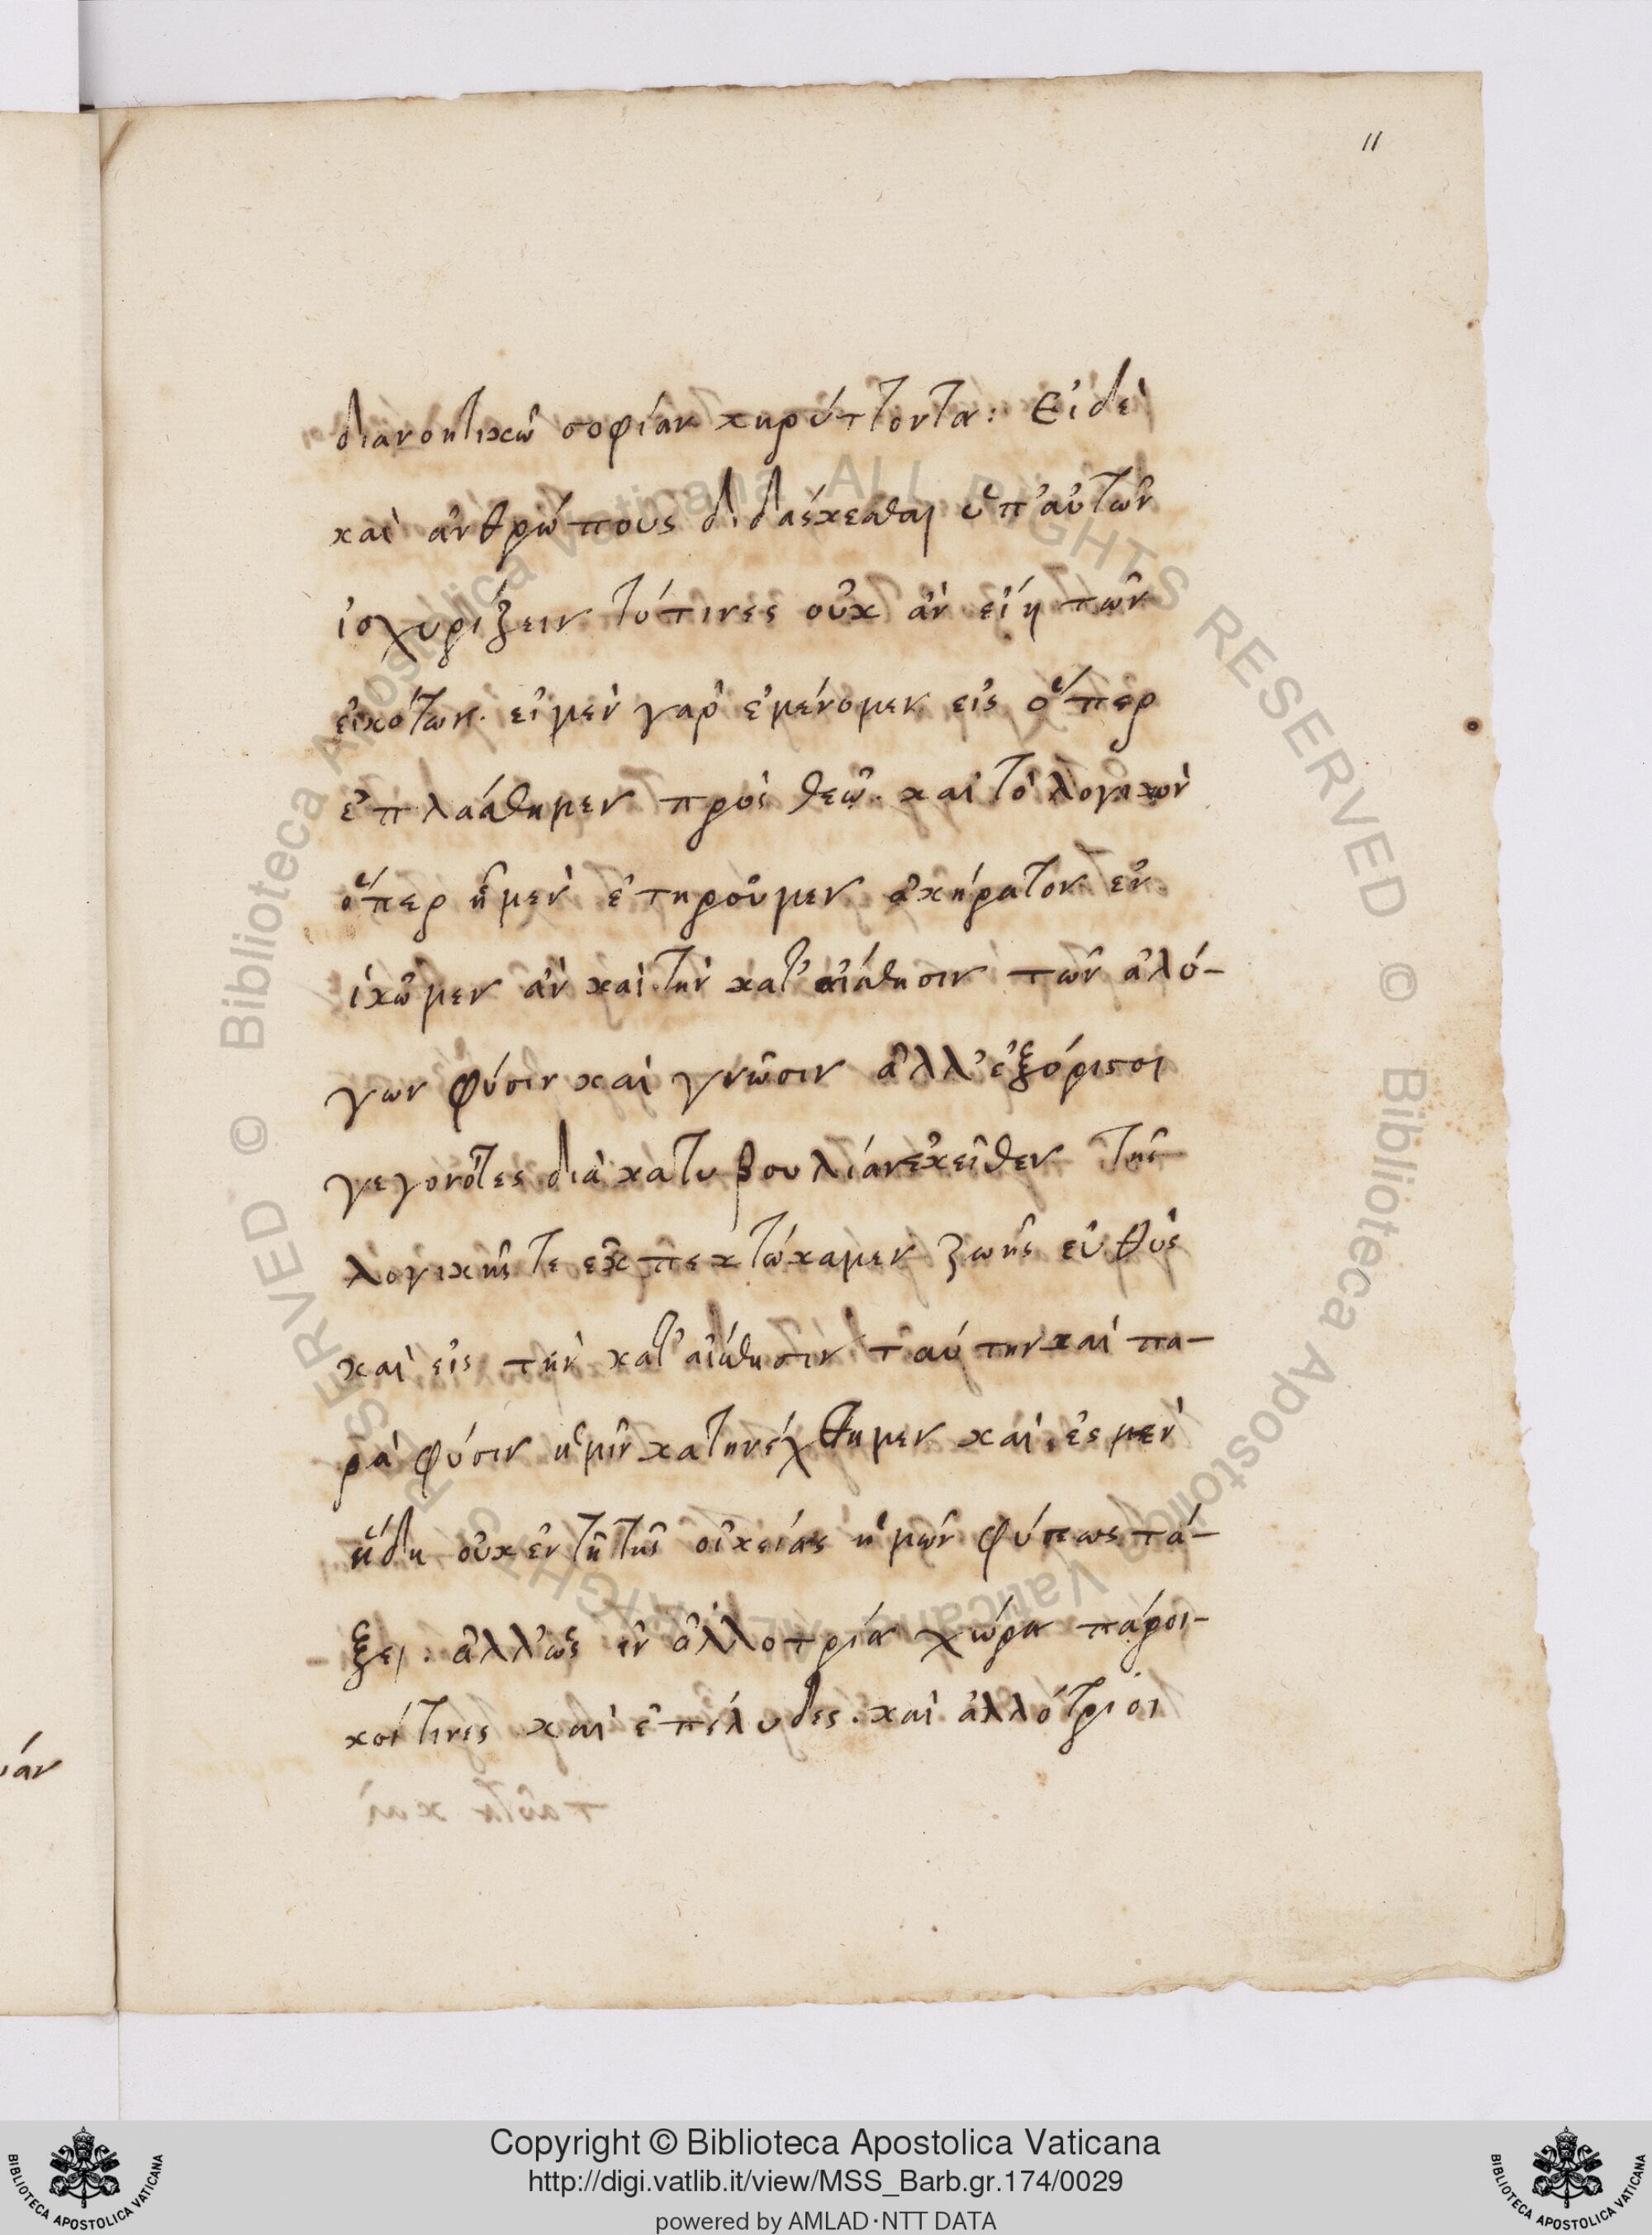 11
διανοητικῶ σοφίαν κηρύττοντα: Εἰ δὲ
καὶ ἀνθρώπους διδάσκεσθαι ὑπ' αὐτῶν
ἰσχυρίζειν τό τινες οὐκ ἀν εἴη τῶν
εἰκότων. εἰ μὲν γαρ ἐμένομεν εἰς ὅπερ
ἐπλάσθημεν πρὸς θεῶ. καὶ τὸ λογικὸν
ὅπερ ἦμεν ἐτηροῦμεν ἀκήρατον ἐν
ικῶμεν ἀν καὶ τὴν κατ' αἴσθησιν τῶν ἀλό-
γων φύσιν καὶ γνῶσιν ἀλλ' ἐξόριστοι
γεγονότες διὰ κατυβουλίαν ἐκεῖθεν τῆς
λογικῆς τε ἐκπεκτώκαμεν ζωῆς εὐθὺς
καὶ εἰς τὴν κατ' αἴσθησιν ταύτην καὶ πα-
ρὰ φύσιν ἡμῖν κατηνέχθημεν καὶ ἐσμὲν
ἤδη οὐκ ἐν τῆ τῆς οἰκείας ἡμῶν φύπεως τά-
ξει. ἀλλ' ὡς ἐν ἀλλοτρία χώρα πάροι-
κοί τινες καὶ ἐπέλυδες. καὶ ἀλλότριοι
ιάν
Copyright © Biblioteca Apostolica Vaticana
http://digi.vatlib.it/view/MSS_Barb.gr.174/0029
powered by AMLAD·NTT DATA
BIBLIOTECA APOSTOLICA VATICANA
BIBLIOTECA APOSTOLICA VATICANA
© Biblioteca Apostolica Vaticana ALL RIGHTS RESERVED
© Biblioteca Apostolica Vaticana ALL RIGHTS RESERVED